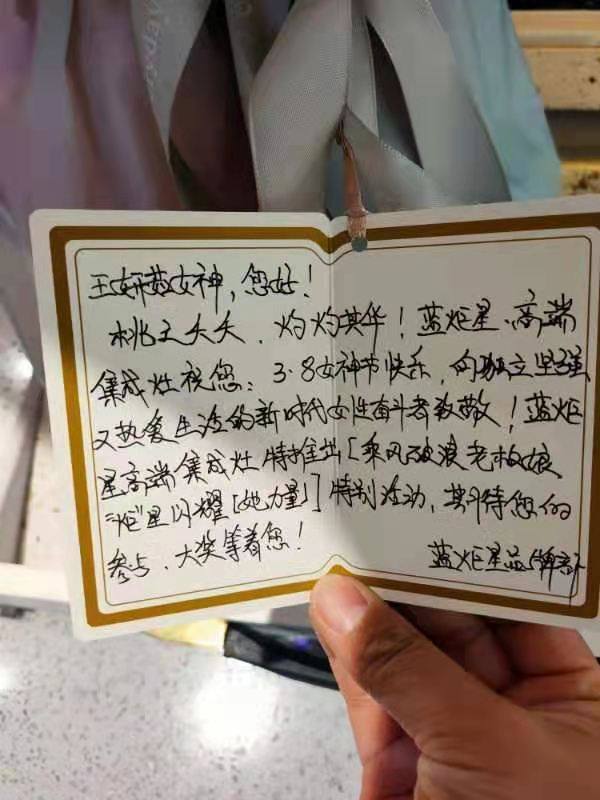 王妍茹女神，您好！
桃之夭夭、灼灼其华！蓝炬星高端
集成灶祝您：3·8女神节快乐，向独立坚强
又热爱生活的新时代女性奋斗者致敬！蓝炬
星高端集成灶特推出[乘风破浪老板娘
“炬”星闪耀[她力量]]特别活动，期待您的
参与、大奖等着您！
蓝炬星品牌部